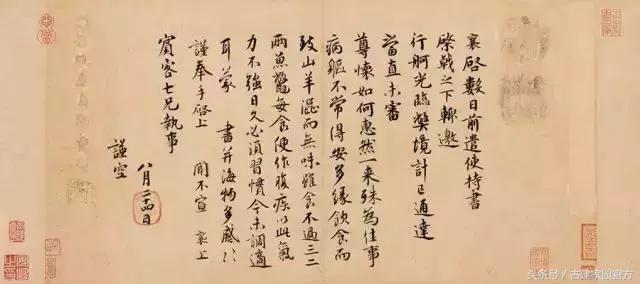 襄啓數日前遣使持書
棨戟之下輒邀
行舸光臨弊境計已通達
當直未審
尊懷如何惠然一来殊為佳事
病軀不常得安多緣飲食而
致山羊澀而無味雖食不過三二
兩魚鼈每食便作腹疾以此氣
力不強日久必須習慣今未調適
耳蒙 書并海物多感〻
謹奉手啓上 聞不宣 襄上
賓客七兄執事
八月二十四日
謹空
头条号 / 古建家园官方